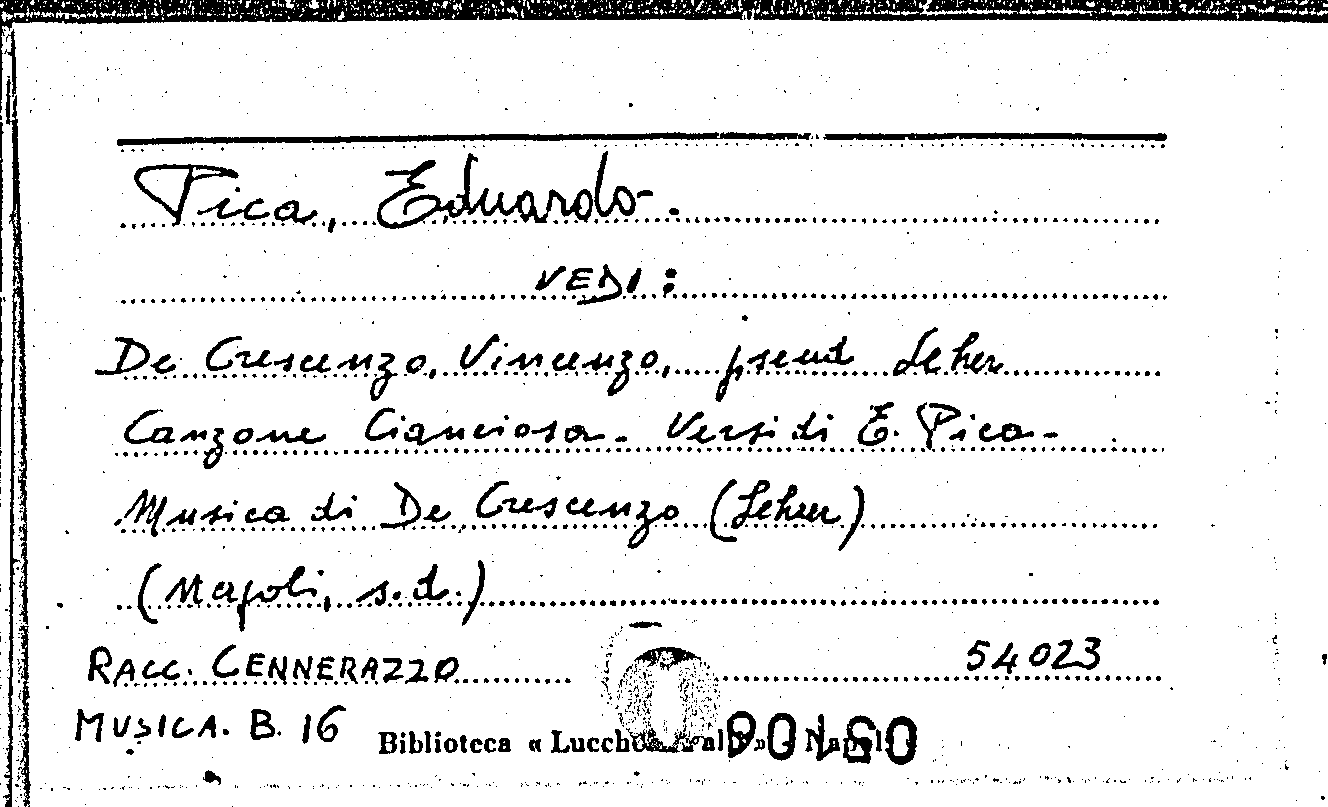 Pica, Eduardo.
VEDI:
De Crescenzo, Vincenzo, pseud Leher
Canzone Cianciosa - Versi di E. Pica -
Musica di De Crescenzo (Leher)
(Napoli, s.d.)
RACC. CENNERAZZO 54023
MUSICA. B. 16
Biblioteca «